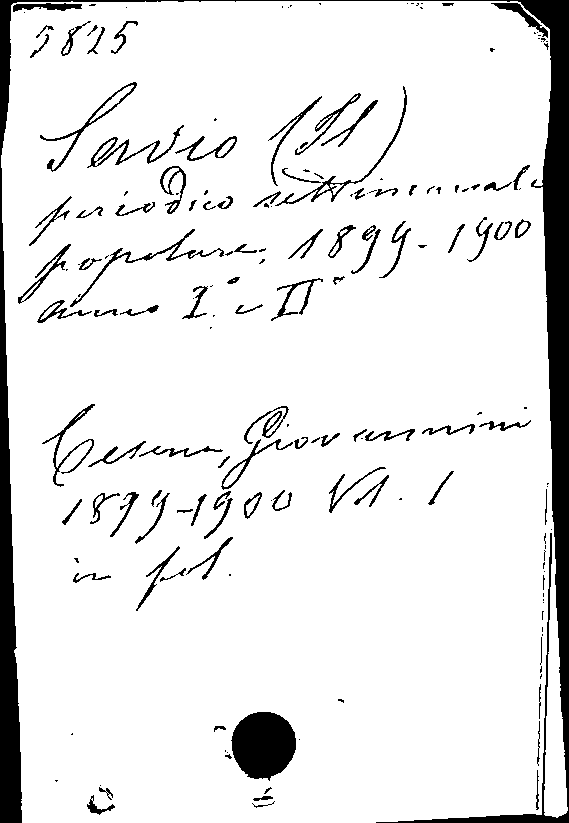 5825
Savio (Il)
periodico settimanale
popolare, 1899-1900
anno I.° e II°
Cesena, Giovannini
1899-1900 Vol. 1
in fol.